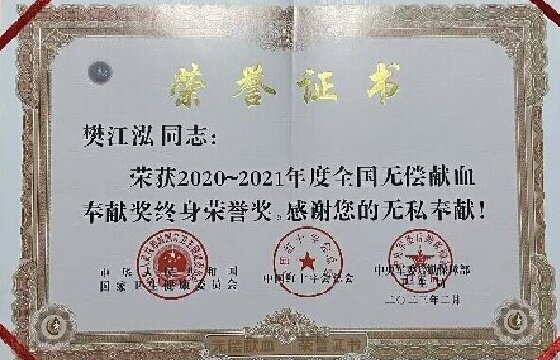 荣誉证书
樊江泓 同志：
荣获2020~2021年度全国无偿献血
奉献奖终身荣誉奖。感谢您的无私奉献！
中华人民共和国
国家卫生健康委员会
中国红十字会总会
中央军委后勤保障部
卫生局
二〇二三年二月
无偿献血 荣誉证书